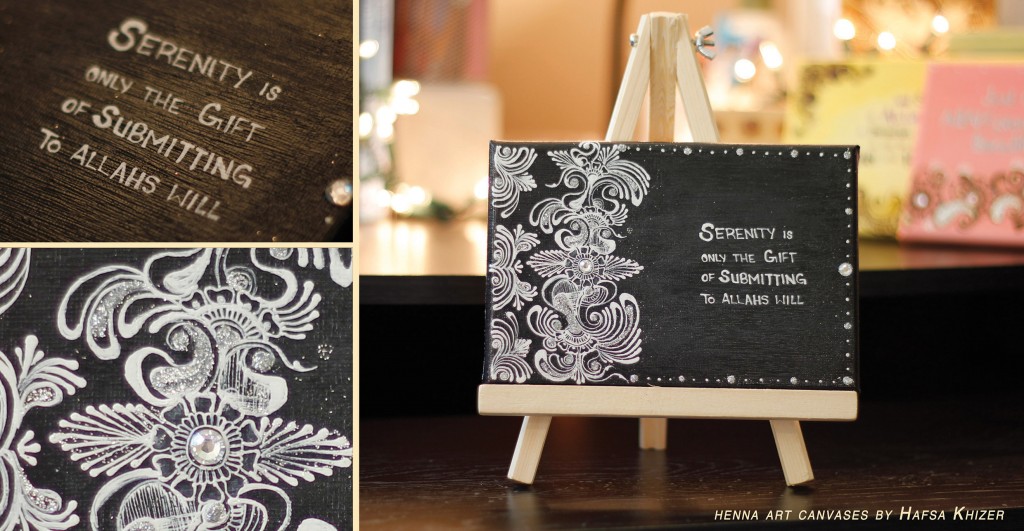 Serenity is
only the Gift
of Submitting
To Allahs will
Serenity is
only the Gift
of Submitting
To Allahs will
HENNA ART CANVASES BY HAFSA KHIZER